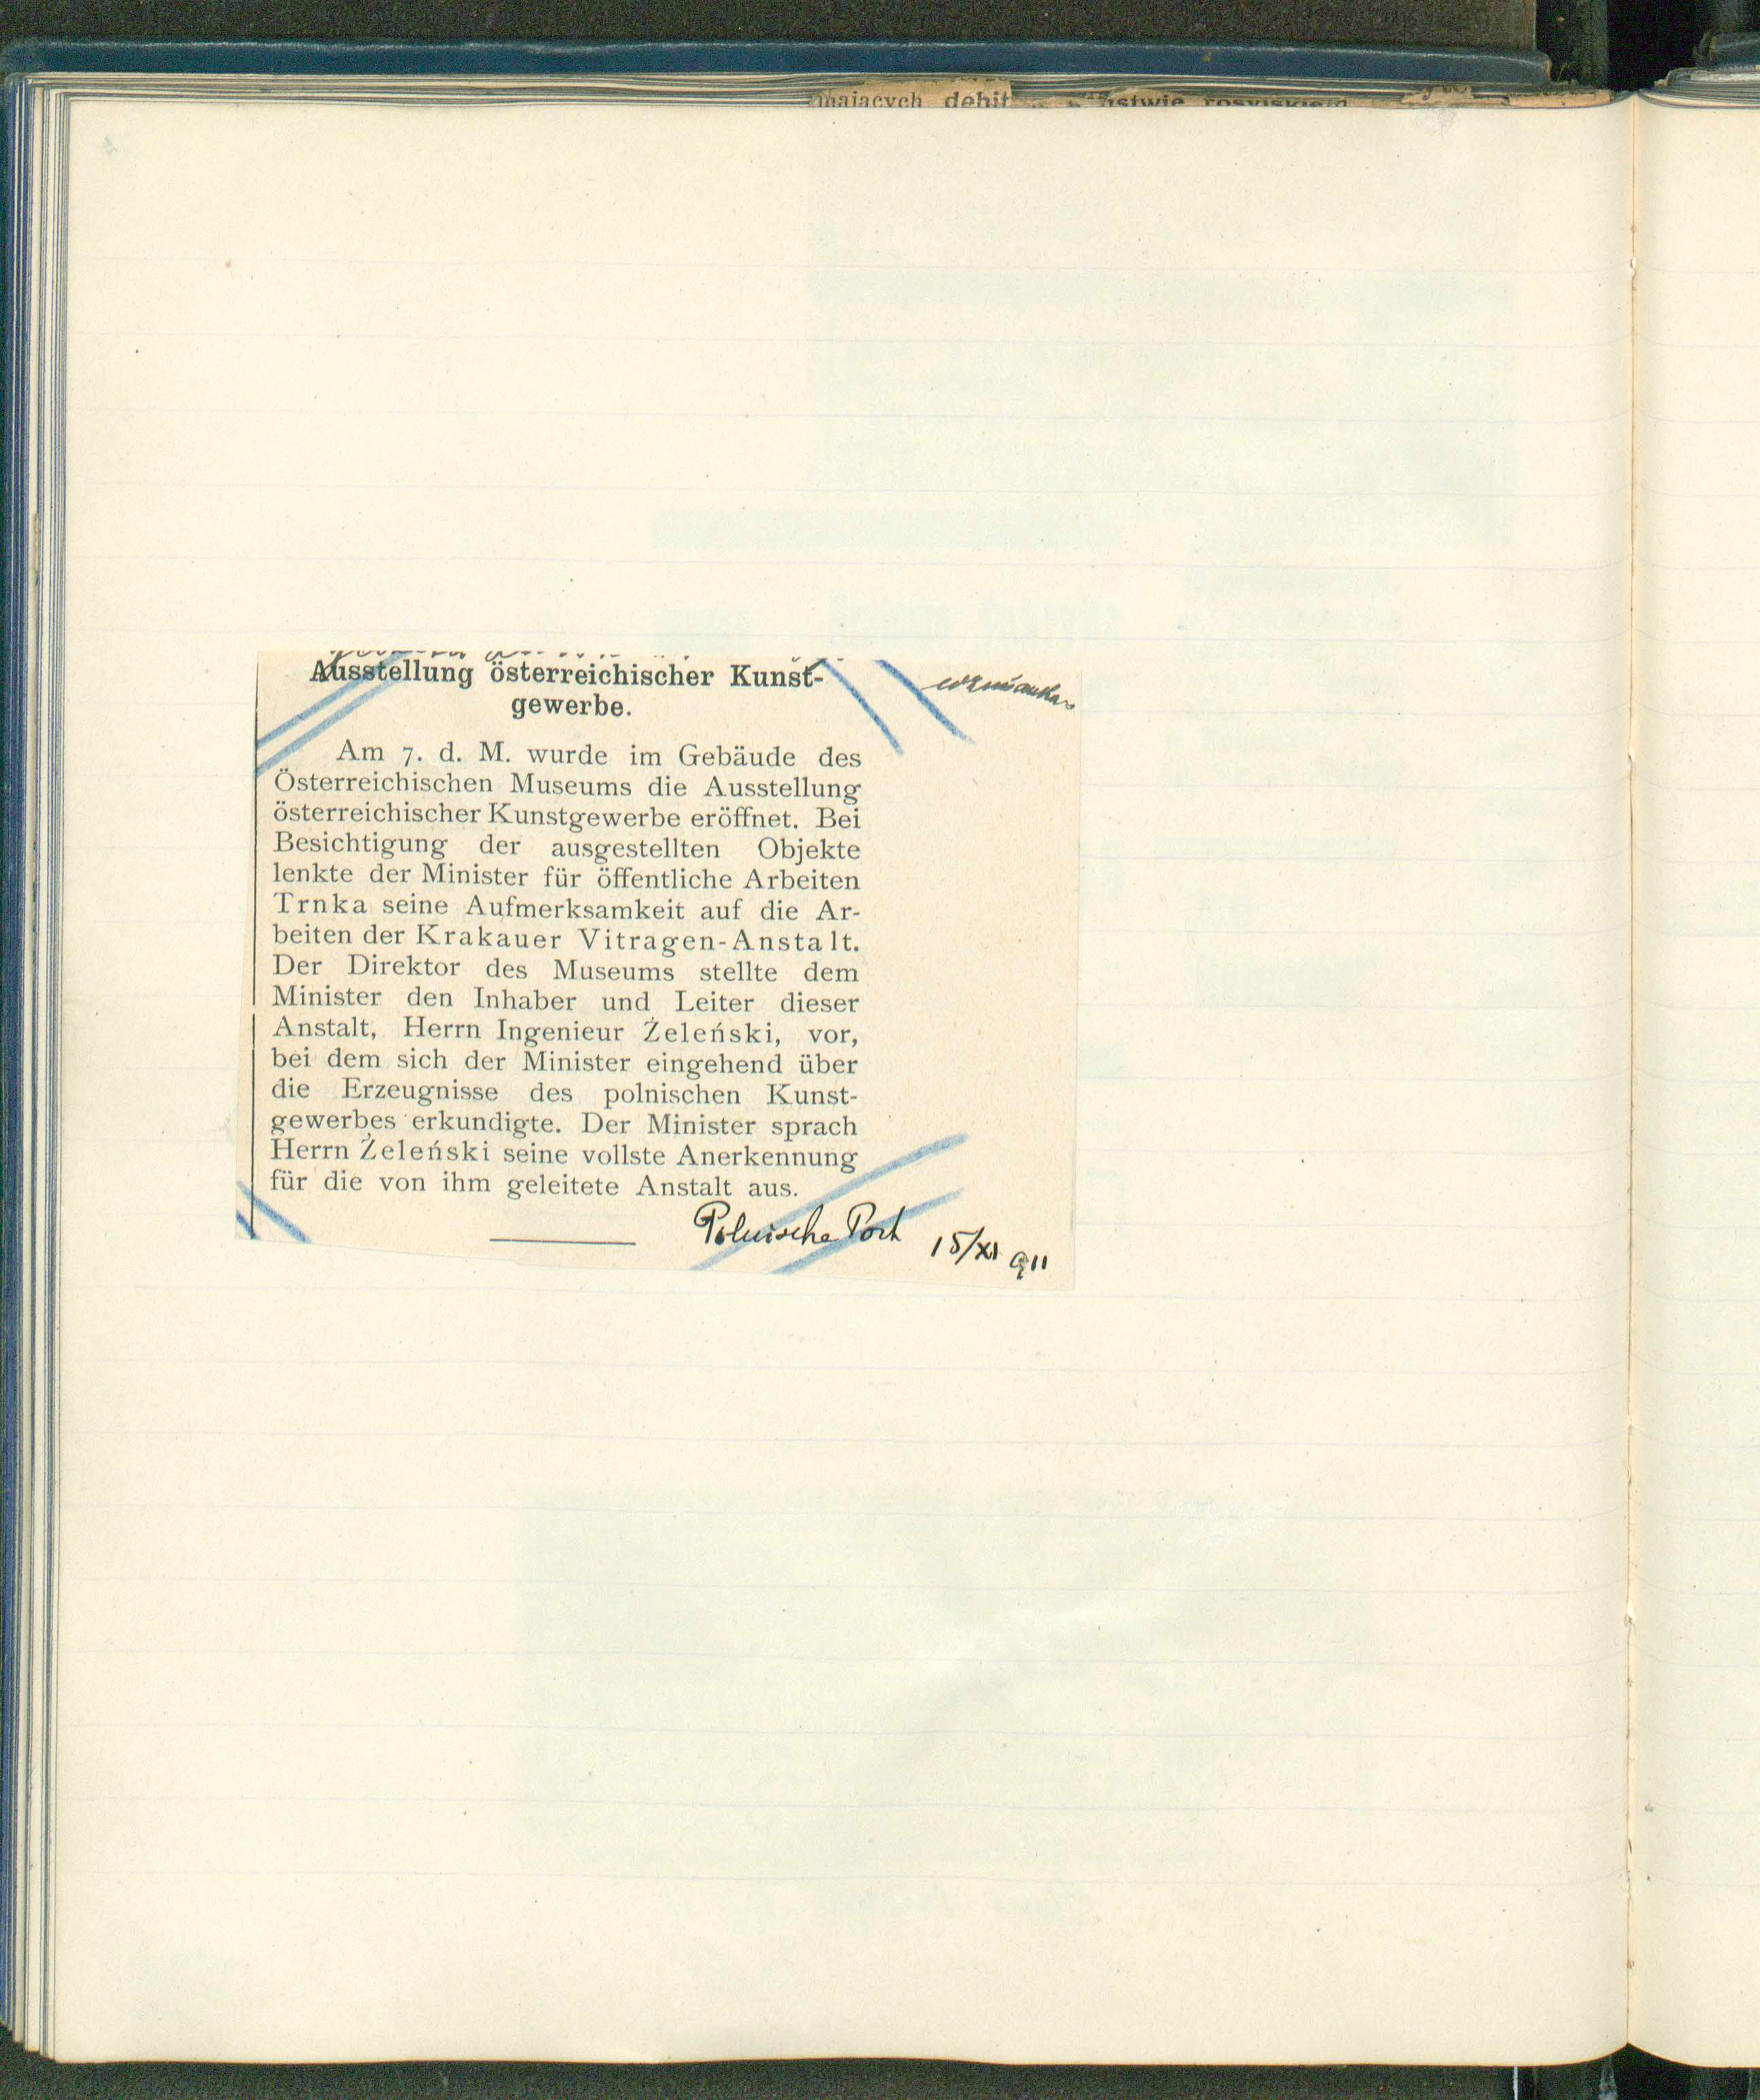 mających debit
Ausstellung österreichischer Kunst-
gewerbe.
wzmianka
Am 7. d. M. wurde im Gebäude des
Österreichischen Museums die Ausstellung
österreichischer Kunstgewerbe eröffnet. Bei
Besichtigung der ausgestellten Objekte
lenkte der Minister für öffentliche Arbeiten
Trnka seine Aufmerksamkeit auf die Ar-
beiten der Krakauer Vitragen-Anstalt.
Der Direktor des Museums stellte dem
Minister den Inhaber und Leiter dieser
Anstalt, Herrn Ingenieur Żeleński, vor,
bei dem sich der Minister eingehend über
die Erzeugnisse des polnischen Kunst-
gewerbes erkundigte. Der Minister sprach
Herrn Żeleński seine vollste Anerkennung
für die von ihm geleitete Anstalt aus.
Polnische Post 15/XI 911